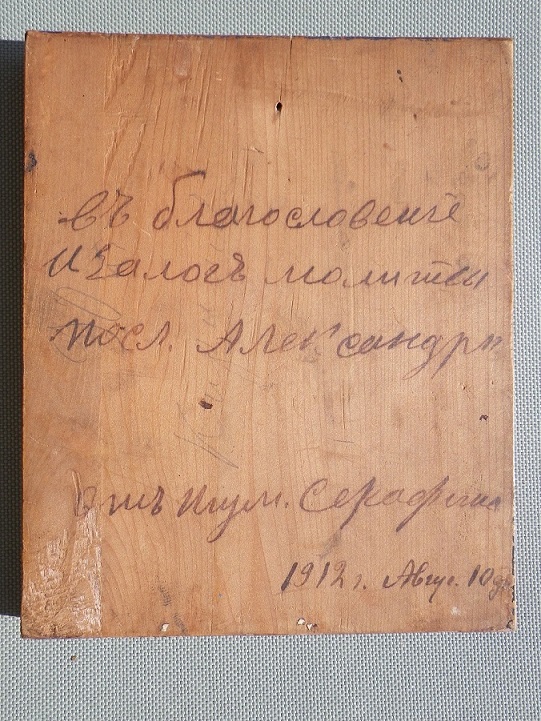 въ благословенiе
и залогъ молитвы
посл. Александры
отъ Игум. Серафима
1912 г. Авгус. 10 д.